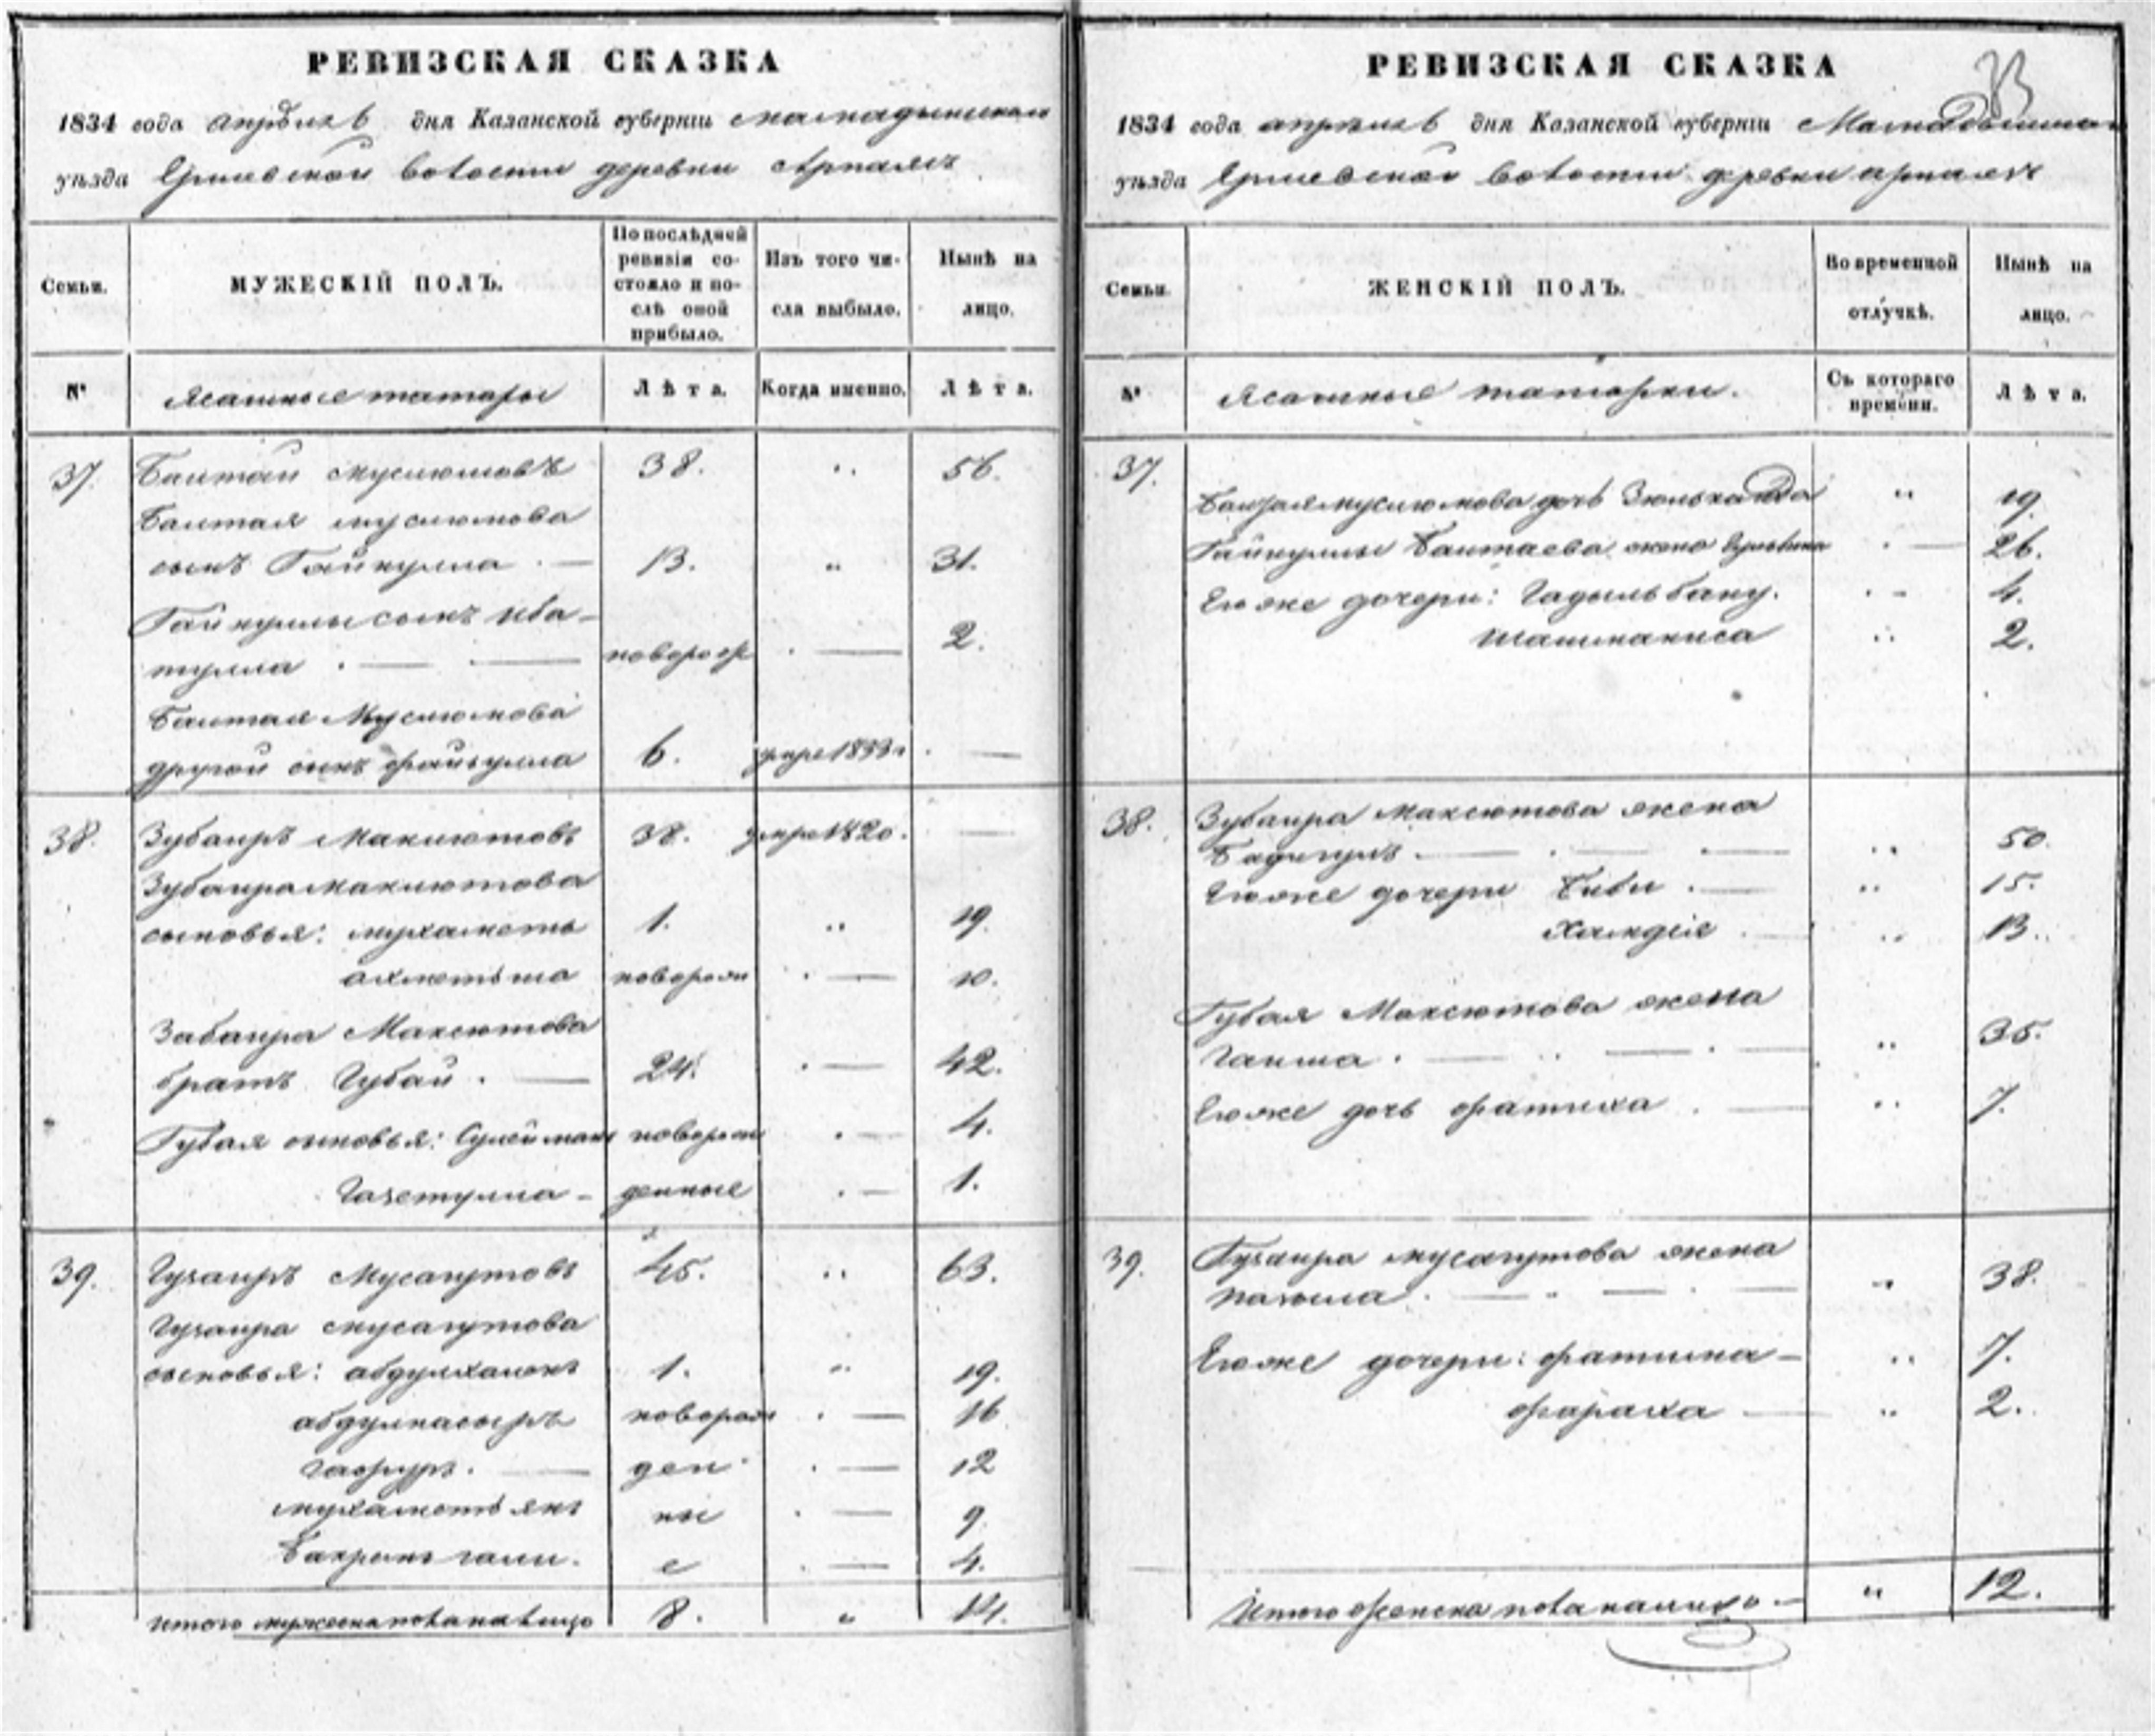 РЕВИЗСКАЯ СКАЗКА
1834 года апреля 6 дня Казанской губерніи Мамадышскаго
уѣзда волости деревни Арпаязъ
Семьи.
МУЖЕСКІЙ ПОЛЪ.
По послѣдней ревизіи состояло и послѣ оной прибыло.
Изъ того числа выбыло.
Нынѣ на лицо.
№
Ясашные татары
Лѣта.
Когда именно.
Лѣта.
37. Баитаи Муслюмовъ 38. „ 56.
Баитая Муслюмова
сынъ Гайнулла 13. „ 31.
Гайнуллы сынъ Иба-
тулла новорож 2.
Баитая Муслюмова
другой сынъ Файзулла 6. умре 1833г
38. Зубаиръ Максютовъ 38. умре 1820.
Зубаира Максютова
сыновья: Мухаметь 1. „ 19.
Ахметьша новорож 10.
Забаира Максютова
братъ Губаи. 24. 42.
Губая сыновья: Сулейманъ новорож 4.
денные 1.
39. Гузаиръ Мусагутовъ 45. „ 63.
Гузаира Мусагутова
сыновья: 1. „ 19.
Абдулнасыръ новорож 16
Гафуръ. ден 12
Мухаметьянъ ны 9
гали. е 4.
Итого мужеска пола на лицо 8. „ 14.
РЕВИЗСКАЯ СКАЗКА
33
1834 года апреля 6 дня Казанской губерніи
уѣзда волости деревни Арпаязъ
Семьи.
ЖЕНСКІЙ ПОЛЪ.
Во временной отлучкѣ.
Нынѣ на лицо.
№
Ясашные татарки.
Съ котораго времени.
Лѣта.
37. Баитая Муслюмова дочь „ 19.
Гайнуллы Баитаева жена 26.
Ево же дочери: Гадыльбану. 4.
„ 2.
38. Зубаира Максютова жена
Бадигулъ „ 50.
Ево же дочери Биби „ 15.
Хамдія „ 13.
Губая Максютова жена
Гаиша „ 35.
Ево же дочь Фатиха „ 7.
39. Гузаира Мусагутова жена
„ 38.
Ево же дочери: Фатима „ 7.
Фараха „ 2.
Итого женска пола на лицо „ 12.